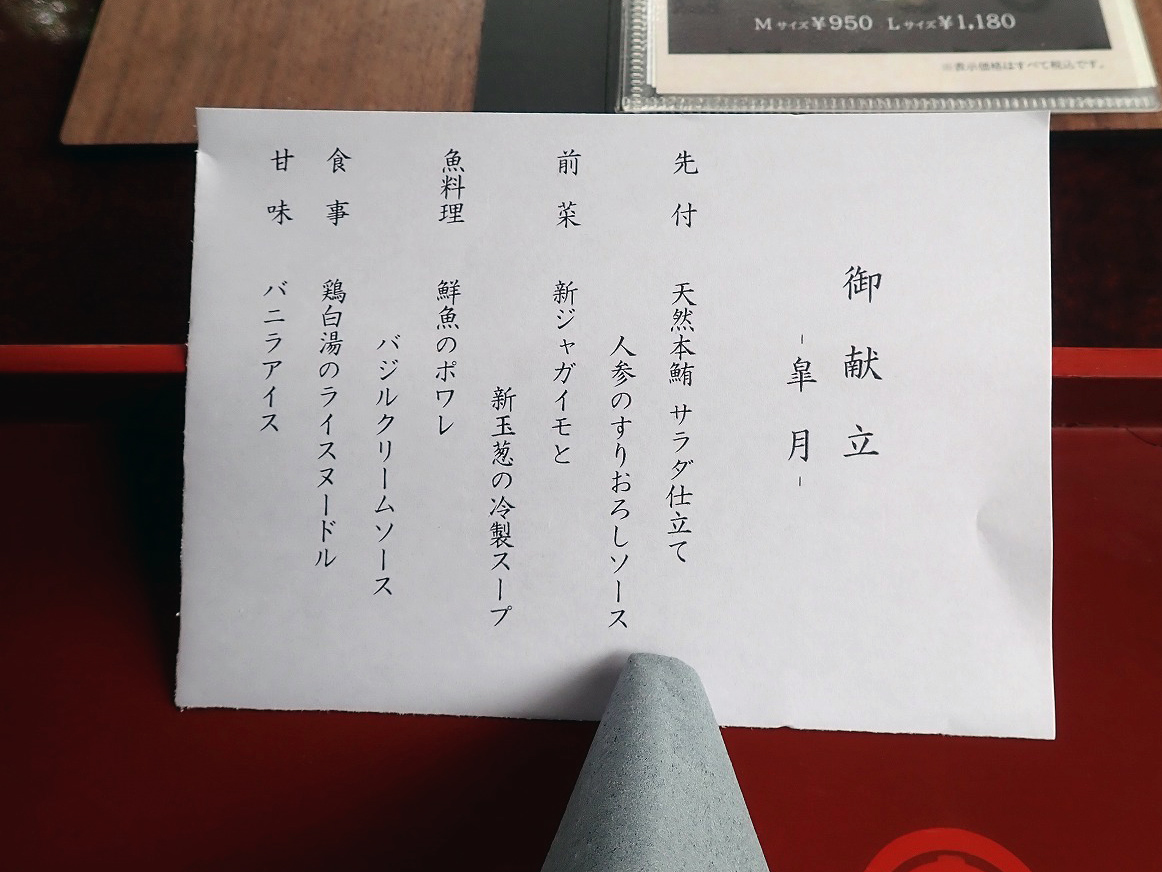 Mサイズ¥950 Lサイズ¥1,180
※表示価格はすべて税込です。
御献立
-皐月-
先付 天然本鮪 サラダ仕立て
人参のすりおろしソース
前菜 新ジャガイモと
新玉葱の冷製スープ
魚料理 鮮魚のポワレ
バジルクリームソース
食事 鶏白湯のライスヌードル
甘味 バニラアイス